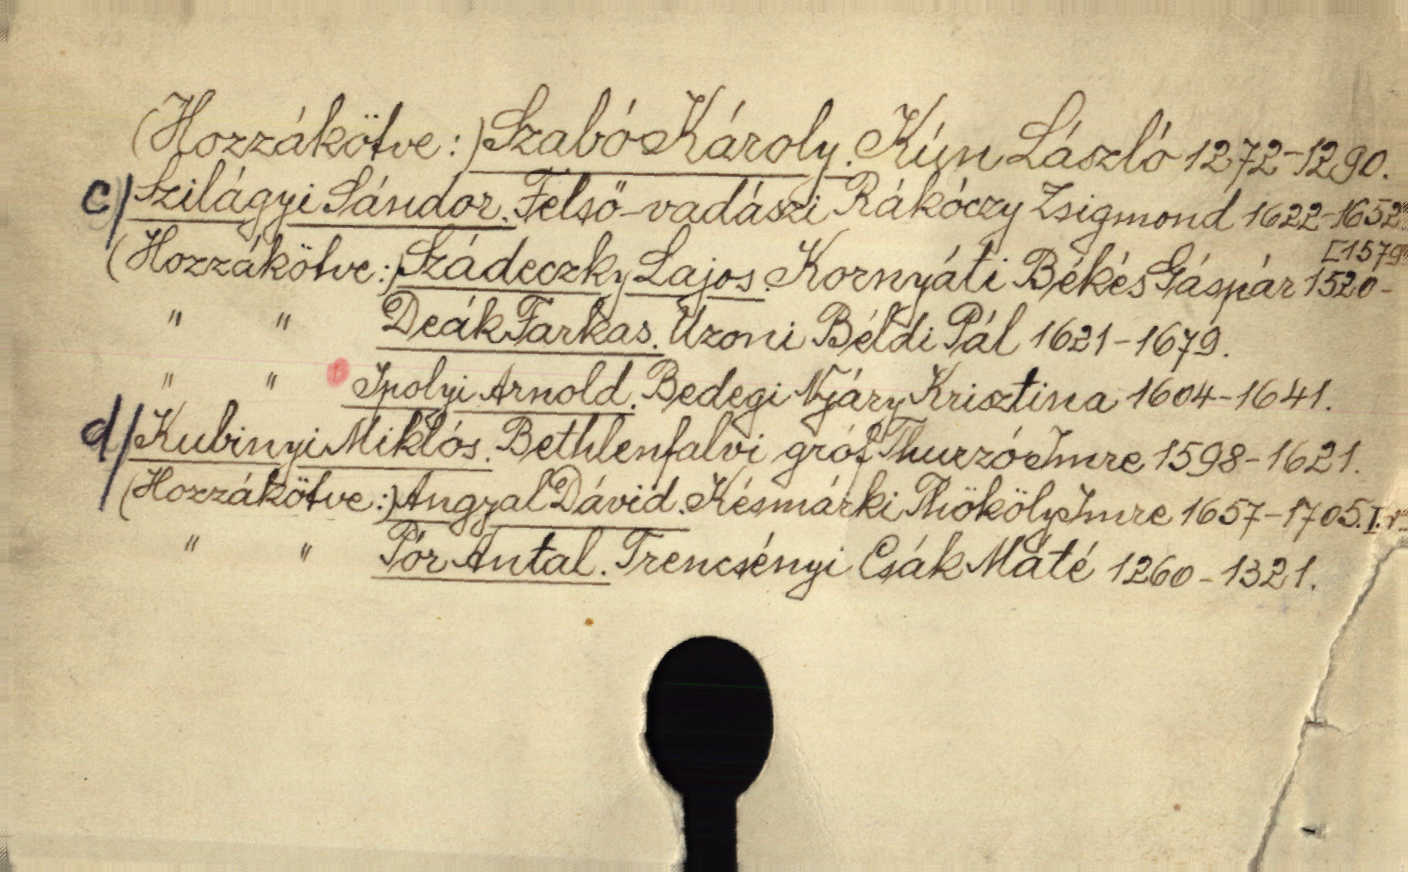 (Hozzákötve:) Szabó Károly. Kún László 1272-1290.
c/ Szilágyi Sándor. Felső-vadászi Rákóczy Zsigmond 1622-1652
[1579
(Hozzákötve:) Szádeczky Lajos. Kornyáti Békés Gáspár 1520-
" " Deák Farkas. Uzoni Béldi Pál 1621-1679.
" " Ipolyi Arnold. Bedegi Nyáry Krisztina 1604-1641.
d/ Kubinyi Miklós. Bethlenfalvi gróf Thurzó Imre 1598-1621.
(Hozzákötve:) Angyal Dávid. Késmárki Thököly Imre 1657-1705. I.
" " Pór Antal. Trencsényi Csák Máté 1260-1321.